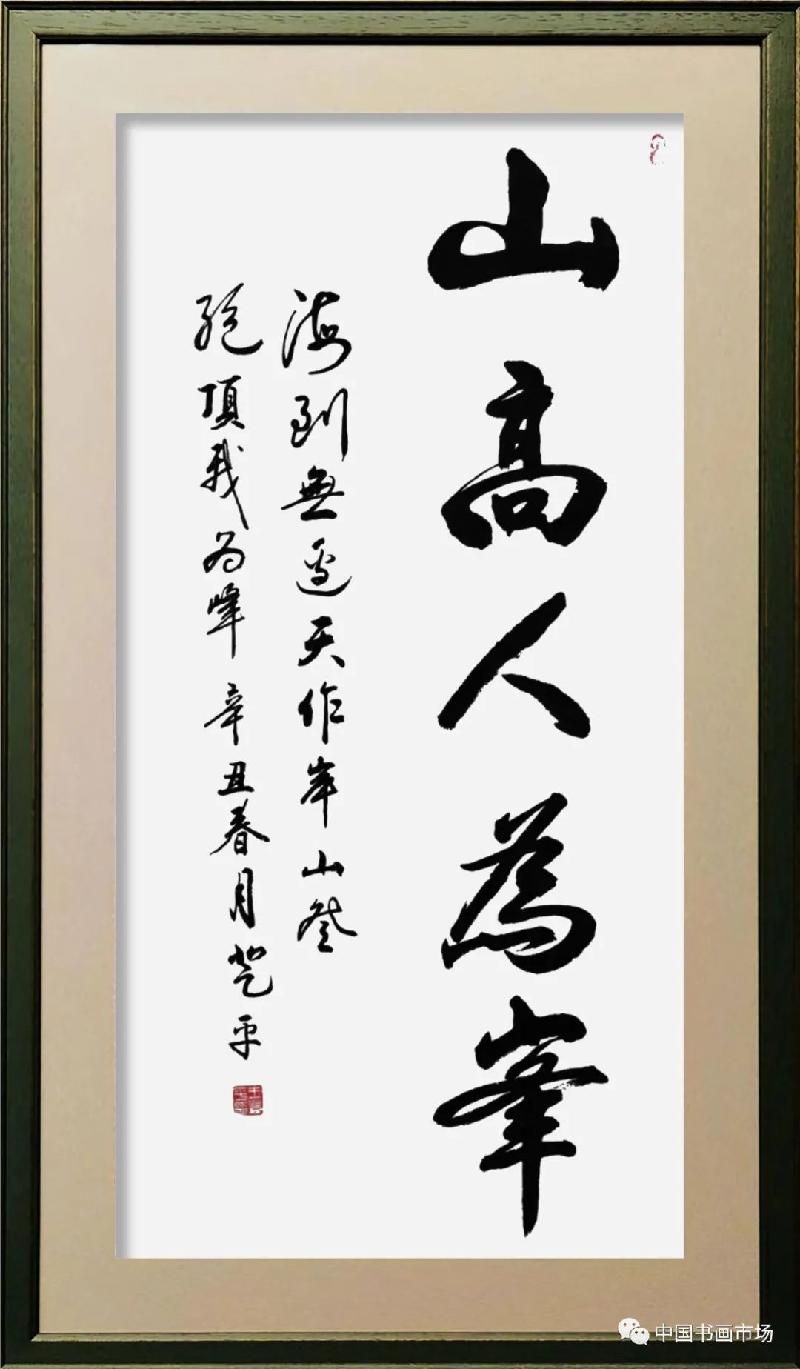 山高人為峯
海到無邊天作岸山登
絕頂我為峰辛丑春月楚平
中国书画市场